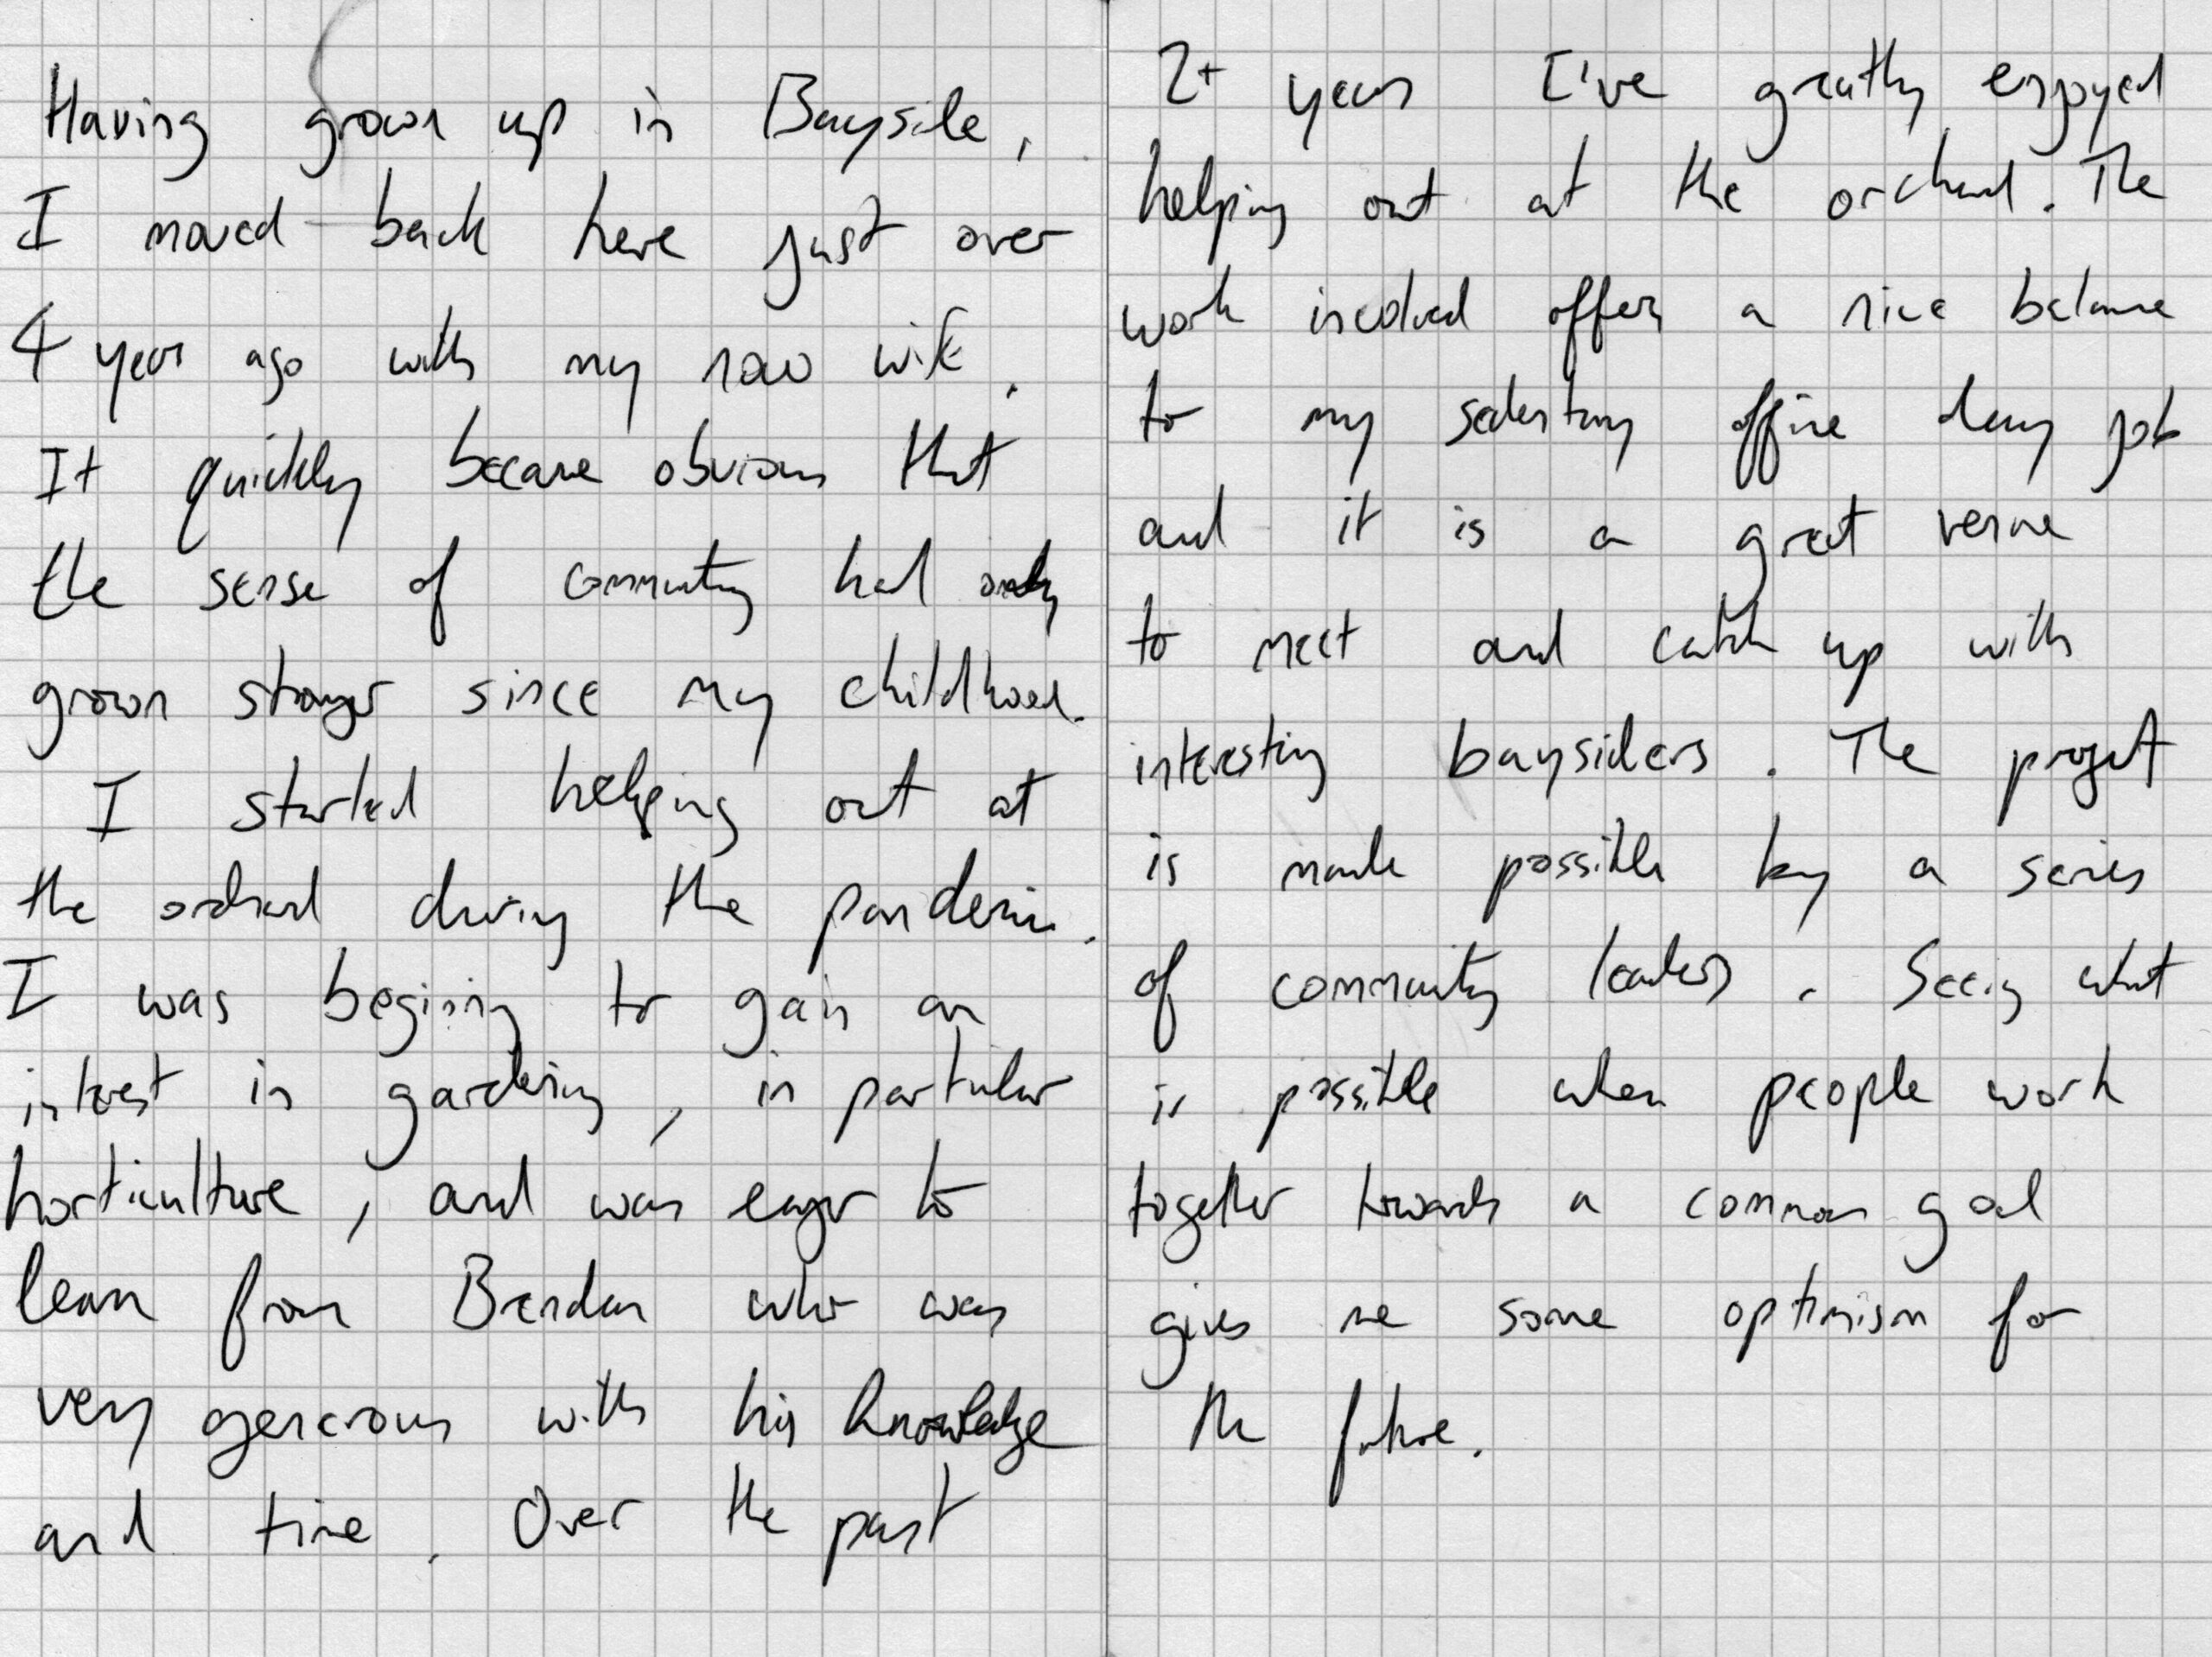 Having grown up in Bayside,
I moved back here just over
4 years ago with my now wife.
It quickly became obvious that
the sense of community had only
grown stronger since my childhood.
I started helping out at
the orchard during the pandemic.
I was begining to gain an
interest in gardening, in particular
horticulture, and was eager to
learn from Brendan who was
very generous with his knowledge
and time. Over the past
2+ years I've greatly enjoyed
helping out at the orchard. The
work involved offers a nice balance
to my sedentary office day job
and it is a great venue
to meet and catch up with
interesting baysiders. The project
is made possible by a series
of community leaders. Seeing what
is possible when people work
together towards a common goal
gives me some optimism for
the future.